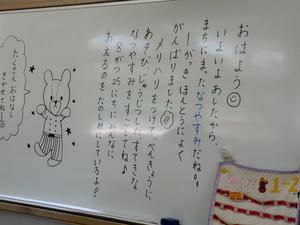 おはよう
いよいよあしたから、
まちにまったなつやすみだね!
1がっき、ほんとうによく
がんばりました
メリハリをつけて、べんきょうに
あそびにじゅうじつした、すてきな
なつやすみをすごしてね♪
8がつ25にちにみんなに
あえるのをたのしみにしているよ!
たくさんおはなし
きかせてねー